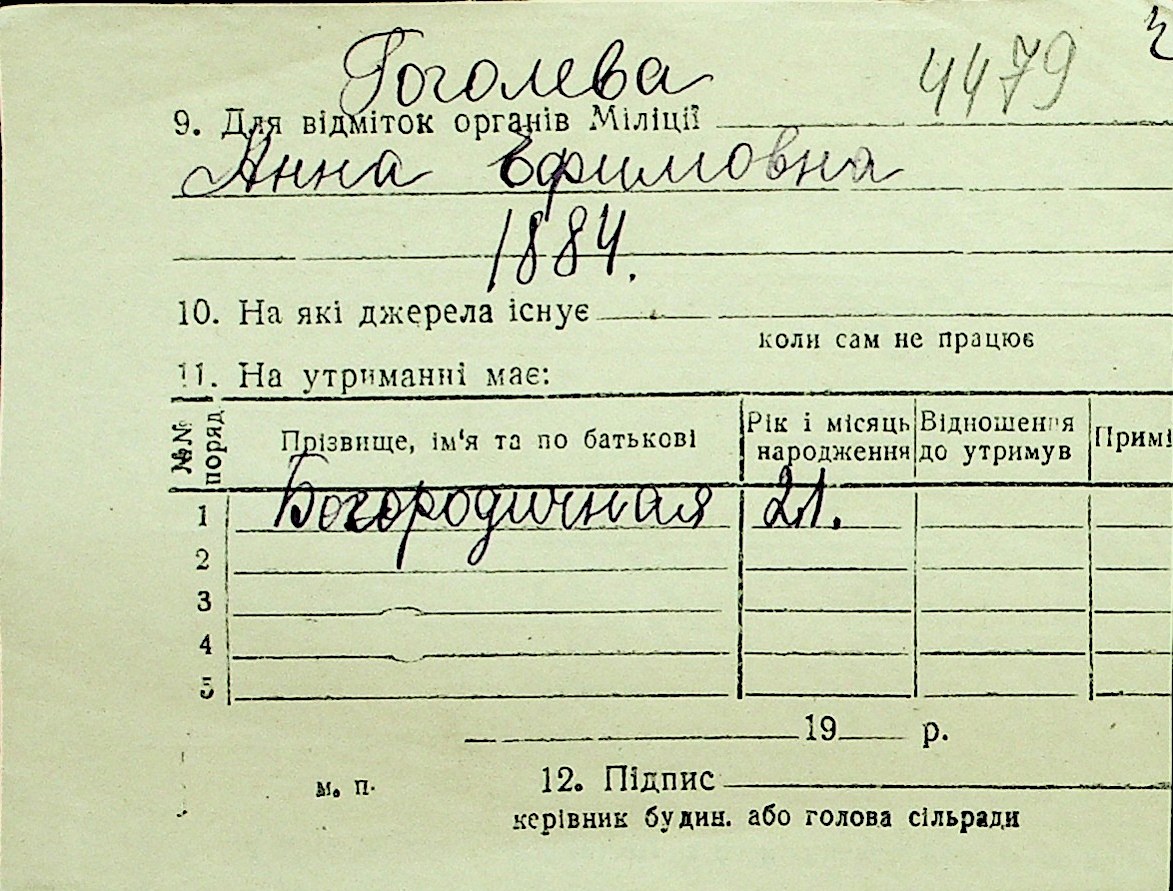 Гоголева 4479
9. Для відміток органів Міліції
Анна Ефимовна
1884.
10. На які джерела існує
коли сам не працює
11. На утриманні має:
№№ поряд Прізвище, ім'я та по батькові Рік і місяць народження Відношення до утримув Примі
1 Богородичная 21.
2
3
4
5
19 р.
м. п. 12. Підпис
керівник будин. або голова сільради